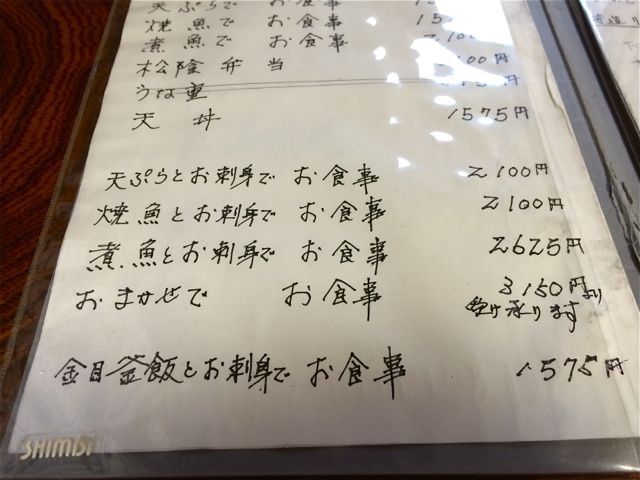 天ぷらで お食事 15
焼魚で お食事 15
煮魚で お食事 2,100
松陰弁当 100円
うな重
天丼 1575円
天ぷらとお刺身で お食事 2100円
焼魚とお刺身で お食事 2100円
煮魚とお刺身で お食事 2625円
おまかせで お食事 3150円より
受け承ります
金目釜飯とお刺身で お食事 1575円
SHIMBI